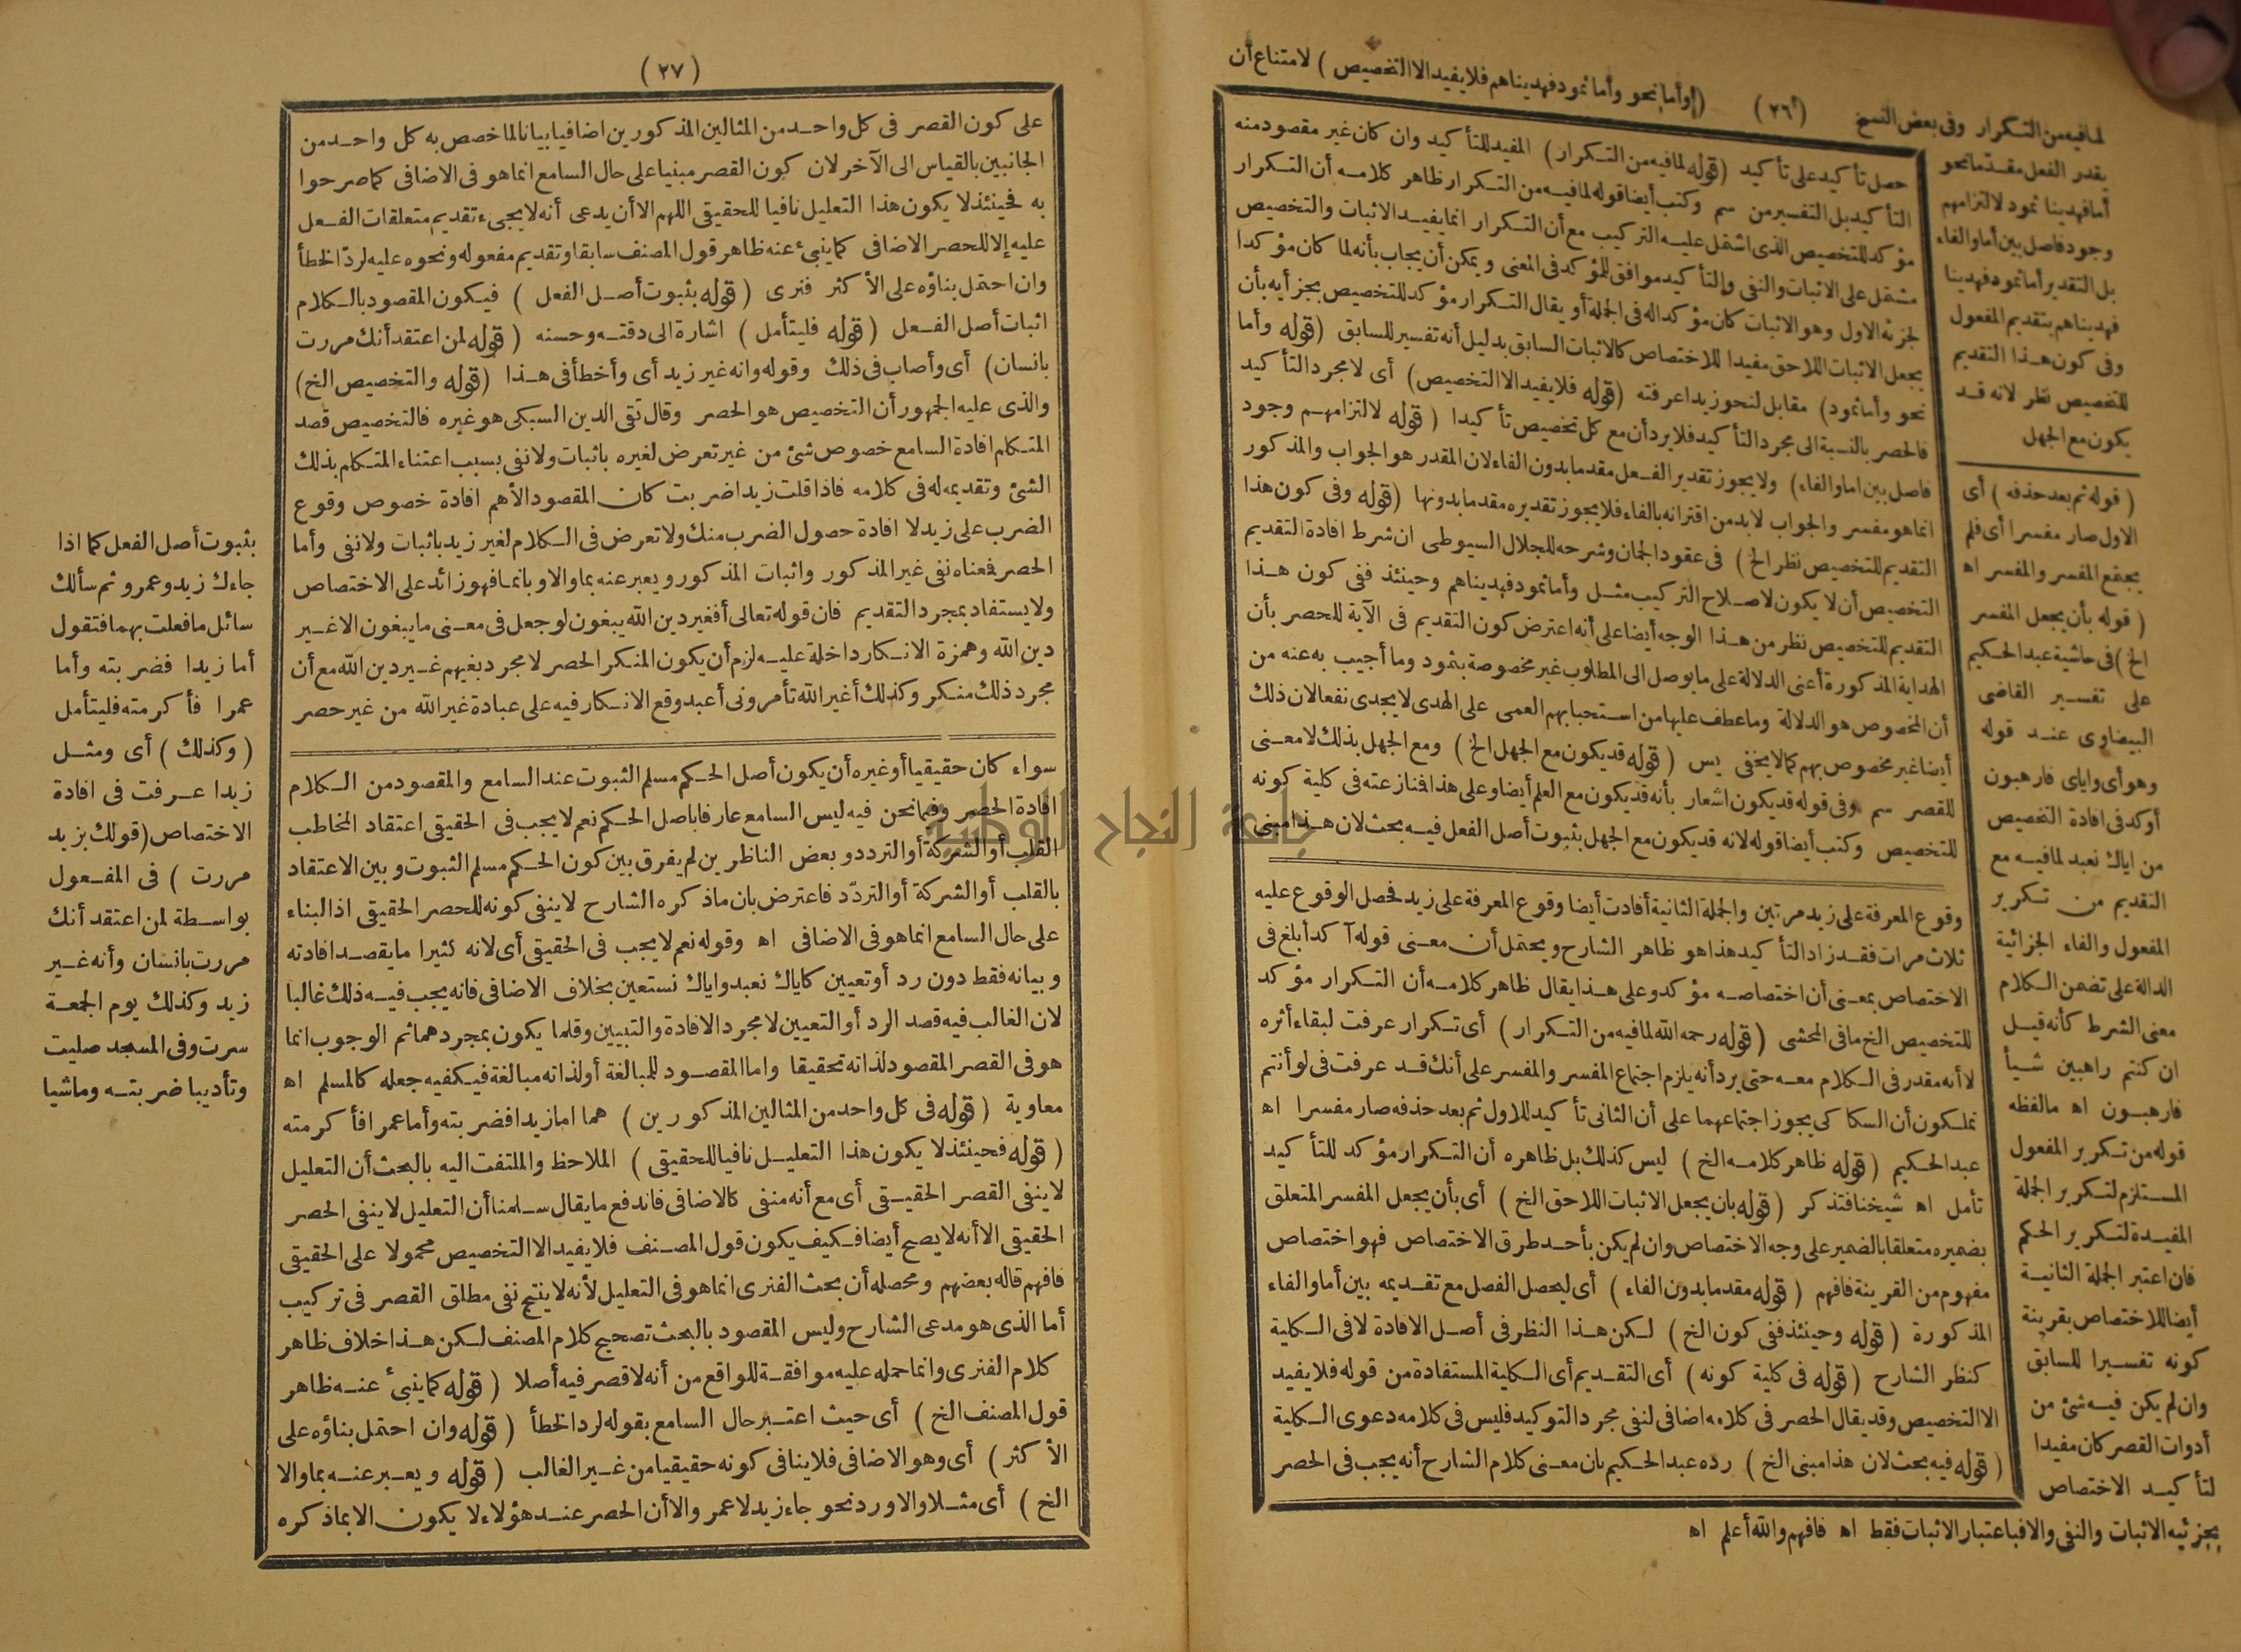 لما فيه من التكرار وفى بعض النسخ (٢٦) (وأما نحو وأما ثمود فهديناهم فلا يفيد الا التخصيص) لامتناع أن
يقدر الفعل مقدما نحو
أما فهدينا ثمود لالتزامهم
وجود فاصل بين أما والفاء
بل التقدير أما ثمود فهدينا
فهديناهم بتقديم المفعول
وفى كون هذا التقديم
للتخصيص نظر لانه قد
يكون مع الجهل
(قوله ثم بعد حذفه) أى
الاول صار مفسرا أى فلم
يجتمع المفسر والمفسر اه
(قوله بأن يجعل المفسر
الخ) فى حاشية عبد الحكيم
على تفسير القاضى
البيضاوى عند قوله
وهو أى واياى فارهبون
أوكد فى افادة التخصيص
من اياك نعبد لما فيه مع
التقديم من تكرير
المفعول والفاء الجزائية
الدالة على تضمن الكلام
معنى الشرط كأنه قيل
ان كنتم راهبين شيأ
فارهبون اه مالفظه
قوله من تكرير المفعول
المستلزم لتكرير الجملة
المفيدة لتكرير الحكم
فان اعتبر الجملة الثانية
أيضا للاختصاص بقرينة
كونه تفسيرا للسابق
وان لم يكن فيه شئ من
أدوات القصر كان مفيدا
لتأكيد الاختصاص
بجزئيه الاثبات والنفى والا فباعتبار الاثبات فقط اه فافهم والله أعلم اه
حصل تأكيد على تأكيد (قوله لما فيه من التكرار) المفيد للتأكيد وان كان غير مقصود منه
التأكيد بل التفسير من سم وكتب أيضا قوله لما فيه من التكرار ظاهر كلامه أن التكرار
مؤكد للتخصيص الذى اشتمل عليه التركيب مع أن التكرار انما يفيد الاثبات والتخصيص
مشتمل على الاثبات والنفى والتأكيد موافق للمؤكد فى المعنى ويمكن أن يجاب بأنه لما كان مؤكدا
لجزئه الاول وهو الاثبات كان مؤكدا له فى الجملة أو يقال التكرار مؤكد للتخصيص بجزأيه بأن
يجعل الاثبات اللاحق مفيدا للاختصاص كالاثبات السابق بدليل أنه تفسير للسابق (قوله وأما
نحو وأما ثمود) مقابل لنحو زيدا عرفته (قوله فلا يفيد الا التخصيص) أى لا مجرد التأكيد
فالحصر بالنسبة الى مجرد التأكيد فلا يرد أن مع كل تخصيص تأكيدا (قوله لالتزامهم وجود
فاصل بين اما والفاء) ولا يجوز تقدير الفعل مقدما بدون الفاء لان المقدر هو الجواب والمذكور
انما هو مفسر والجواب لا بد من اقترانه بالفاء فلا يجوز تقديره مقدما بدونها (قوله وفى كون هذا
التقديم للتخصيص نظر الخ) فى عقود الجمان وشرحه للجلال السيوطى ان شرط افادة التقديم
التخصيص أن لا يكون لاصلاح التركيب مثل وأما ثمود فهديناهم وحينئذ ففى كون هذا
التقديم للتخصيص نظر من هذا الوجه أيضا على أنه اعترض كون التقديم فى الآية للحصر بأن
الهداية المذكورة أعنى الدلالة على ما يوصل الى المطلوب غير مخصوصة بثمود وما أجيب به عنه من
أن المخصوص هو الدلالة وما عطف عليها من استحبابهم العمى على الهدى لا يجدى نفعا لان ذلك
أيضا غير مخصوص بهم كما لا يخفى يس (قوله قد يكون مع الجهل الخ) ومع الجهل بذلك لا معنى
للقصر سم وفى قوله قد يكون اشعار بأنه قد يكون مع العلم أيضا وعلى هذا فنازعته فى كلية كونه
للتخصيص وكتب أيضا قوله لانه قد يكون مع الجهل بثبوت أصل الفعل فيه بحث لان هذا مبنى
وقوع المعرفة على زيد مرتين والجملة الثانية أفادت أيضا وقوع المعرفة على زيد فحصل الوقوع عليه
ثلاث مرات فقد زاد التأكيد هذا هو ظاهر الشارح ويحتمل أن معنى قوله آكد أبلغ فى
الاختصاص بمعنى أن اختصاصه مؤكد وعلى هذا يقال ظاهر كلامه أن التكرار مؤكد
للتخصيص الخ ما فى المحشى (قوله رحمه الله لما فيه من التكرار) أى تكرار عرفت لبقاء أثره
لا أنه مقدر فى الكلام معه حتى يرد أنه يلزم اجتماع المفسر والمفسر على أنك قد عرفت فى لو أنتم
تملكون أن السكاكى يجوز اجتماعهما على أن الثانى تأكيد للاول ثم بعد حذفه صار مفسرا اه
عبد الحكيم (قوله ظاهر كلامه الخ) ليس كذلك بل ظاهره أن التكرار مؤكد للتأكيد
تأمل اه شيخنا فتذكر (قوله بان يجعل الاثبات اللاحق الخ) أى بأن يجعل المفسر المتعلق
بضميره متعلقا بالضمير على وجه الاختصاص وان لم يكن بأحد طرق الاختصاص فهو اختصاص
مفهوم من القرينة فافهم (قوله مقدما بدون الفاء) أى ليحصل الفصل مع تقديمه بين أما والفاء
المذكورة (قوله وحينئذ ففى كون الخ) لكن هذا النظر فى أصل الافادة لا فى الكلية
كنظر الشارح (قوله فى كلية كونه) أى التقديم أى الكلية المستفادة من قوله فلا يفيد
الا التخصيص وقد يقال الحصر فى كلامه اضافى لنفى مجرد التوكيد فليس فى كلامه دعوى الكلية
(قوله فيه بحث لان هذا مبنى الخ) رده عبد الحكيم بان معنى كلام الشارح أنه يجب فى الحصر
(٢٧)
على كون القصر فى كل واحد من المثالين المذكورين اضافيا بيانا لما خصص به كل واحد من
الجانبين بالقياس الى الآخر لان كون القصر مبنيا على حال السامع انما هو فى الاضافى كما صرحوا
به فحينئذ لا يكون هذا التعليل نافيا للحقيقى اللهم الا أن يدعى أنه لا يجىء تقديم متعلقات الفعل
عليه إلا للحصر الاضافى كما ينبئ عنه ظاهر قول المصنف سابقا وتقديم مفعوله ونحوه عليه لردّ الخطأ
وان احتمل بناؤه على الأكثر فنرى (قوله بثبوت أصل الفعل) فيكون المقصود بالكلام
اثبات أصل الفعل (قوله فليتأمل) اشارة الى دقته وحسنه (قوله لمن اعتقد أنك مررت
بانسان) أى وأصاب فى ذلك وقوله وانه غير زيد أى وأخطأ فى هذا (قوله والتخصيص الخ)
والذى عليه الجمهور أن التخصيص هو الحصر وقال تقى الدين السبكى هو غيره فالتخصيص قصد
المتكلم افادة السامع خصوص شئ من غير تعرض لغيره باثبات ولا نفى بسبب اعتناء المتكلم بذلك
الشئ وتقديمه له فى كلامه فاذا قلت زيدا ضربت كان المقصود الأهم افادة خصوص وقوع
الضرب على زيد لا افادة حصول الضرب منك ولا تعرض فى الكلام لغير زيد باثبات ولا نفى وأما
الحصر فمعناه نفى غير المذكور واثبات المذكور ويعبر عنه بما والا وبانما فهو زائد على الاختصاص
ولا يستفاد بمجرد التقديم فان قوله تعالى أفغير دين الله يبغون لو جعل فى معنى ما يبغون الا غير
دين الله وهمزة الانكار داخلة عليه لزم أن يكون المنكر الحصر لا مجرد بغيهم غير دين الله مع أن
مجرد ذلك منكر وكذلك أغير الله تأمرونى أعبد وقع الانكار فيه على عبادة غير الله من غير حصر
سواء كان حقيقيا أو غيره أن يكون أصل الحكم مسلم الثبوت عند السامع والمقصود من الكلام
افادة الحصر وفيما نحن فيه ليس السامع عارفا باصل الحكم نعم لا يجب فى الحقيقى اعتقاد المخاطب
القلب أو الشركة أو التردد وبعض الناظرين لم يفرق بين كون الحكم مسلم الثبوت وبين الاعتقاد
بالقلب أو الشركة أو التردّد فاعترض بان ما ذكره الشارح لا ينفى كونه للحصر الحقيقى اذ البناء
على حال السامع انما هو فى الاضافى اه وقوله نعم لا يجب فى الحقيقى أى لانه كثيرا ما يقصد افادته
وبيانه فقط دون رد أو تعيين كاياك نعبد واياك نستعين بخلاف الاضافى فانه يجب فيه ذلك غالبا
لان الغالب فيه قصد الرد أو التعيين لا مجرد الافادة والتبيين وقلما يكون بمجرد هما ثم الوجوب انما
هو فى القصر المقصود لذاته تحقيقا واما المقصود للمبالغة أو لذاته مبالغة فيكفيه جعله كالمسلم اه
معاوية (قوله فى كل واحد من المثالين المذكورين) هما اما زيدا فضربته وأما عمرا فأكرمته
(قوله فحينئذ لا يكون هذا التعليل نافيا للحقيقى) الملاحظ والملتفت اليه بالبحث أن التعليل
لا ينفى القصر الحقيقى أى مع أنه منفى كالاضافى فاندفع ما يقال سلمنا أن التعليل لا ينفى الحصر
الحقيقى الا أنه لا يصح أيضا فكيف يكون قول المصنف فلا يفيد الا التخصيص محمولا على الحقيقى
فافهم قاله بعضهم ومحصله أن بحث الفنرى انما هو فى التعليل لأنه لا ينتج نفى مطلق القصر فى تركيب
أما الذى هو مدعى الشارح وليس المقصود بالبحث تصحيح كلام المصنف لكن هذا خلاف ظاهر
كلام الفنرى وانما حمله عليه موافقة للواقع من أنه لا قصر فيه أصلا (قوله كما ينبئ عنه ظاهر
قول المصنف الخ) أى حيث اعتبر حال السامع بقوله لرد الخطأ (قوله وان احتمل بناؤه على
الأكثر) أى وهو الاضافى فلا ينافى كونه حقيقيا من غير الغالب (قوله ويعبر عنه بما والا
الخ) أى مثلا والا ورد نحو جاء زيد لا عمر والا أن الحصر عند هؤلاء لا يكون الا بما ذكره
بثبوت أصل الفعل كما اذا
جاءك زيد وعمرو ثم سألك
سائل ما فعلت بهما فتقول
أما زيدا فضربته وأما
عمرا فأكرمته فليتأمل
(وكذلك) أى ومثل
زيدا عرفت فى افادة
الاختصاص (قولك بزيد
مررت) فى المفعول
بواسطة لمن اعتقد أنك
مررت بانسان وأنه غير
زيد وكذلك يوم الجمعة
سرت وفى المسجد صليت
وتأديبا ضربته وماشيا
جامعة النجاح الوطنية